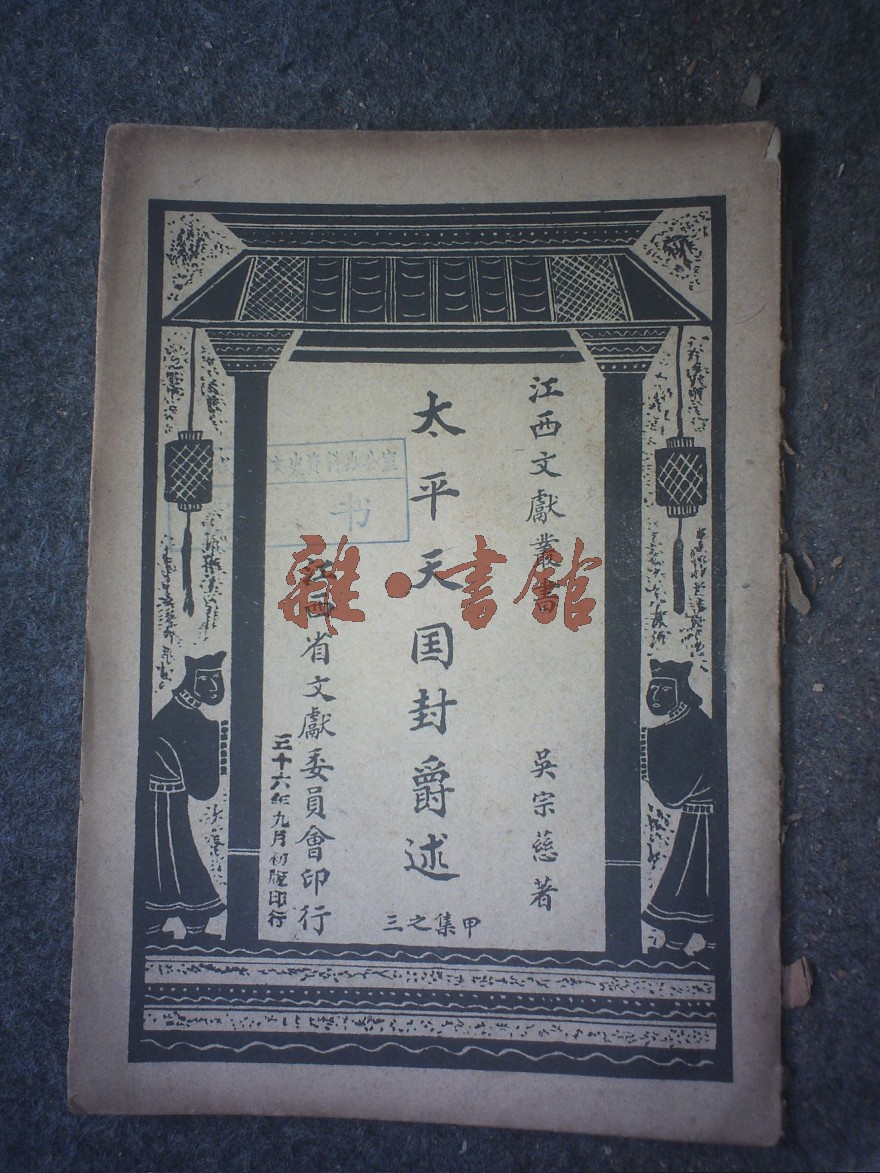 江西文獻叢書
吳宗慈著
太平天囯封爵述
甲集之三
江西省文獻委員會印行
三十六年九月初版印行
文史資料办公室
书
雜·書館